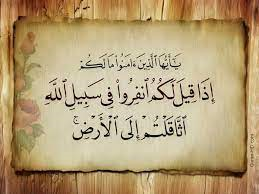 يَٰٓأَيُّهَا ٱلَّذِينَ ءَامَنُوا۟ مَا لَكُمْ
إِذَا قِيلَ لَكُمُ ٱنفِرُوا۟ فِى سَبِيلِ ٱللَّهِ
ٱثَّاقَلْتُمْ إِلَى ٱلْأَرْضِ ۚ